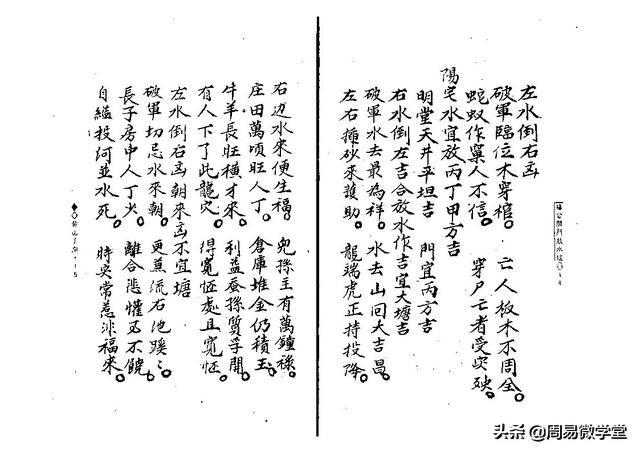 左水倒右凶
破軍臨位木穿棺。亡人板木不周全。
蛇蚁作窠人不信。穿尸亡者受灾殃。
陽宅水宜放丙丁甲方吉
明堂天井平坦吉 門宜丙方吉
右水倒左吉合放水作吉宜大塘吉
破軍水去最為祥。水去山回大吉昌。
左右攔砂來護助。龍端虎正持投降。
右边水來便生福。兒孫主有萬鍾祿。
庄田萬頃旺人丁。倉庫堆金仍積玉。
牛羊長旺橫才來。利益蚕孫質孚開。
有人下了此龍穴。得寬恠處且寬恠。
左水倒右凶朝來凶不宜塘
破軍切忌水來朝。更蕉流石池蹊〻。
長子房中人丁少。離合悲懽不饒。
自縊投河並水死。時灾常惹非福來。
头条 @周易微学堂